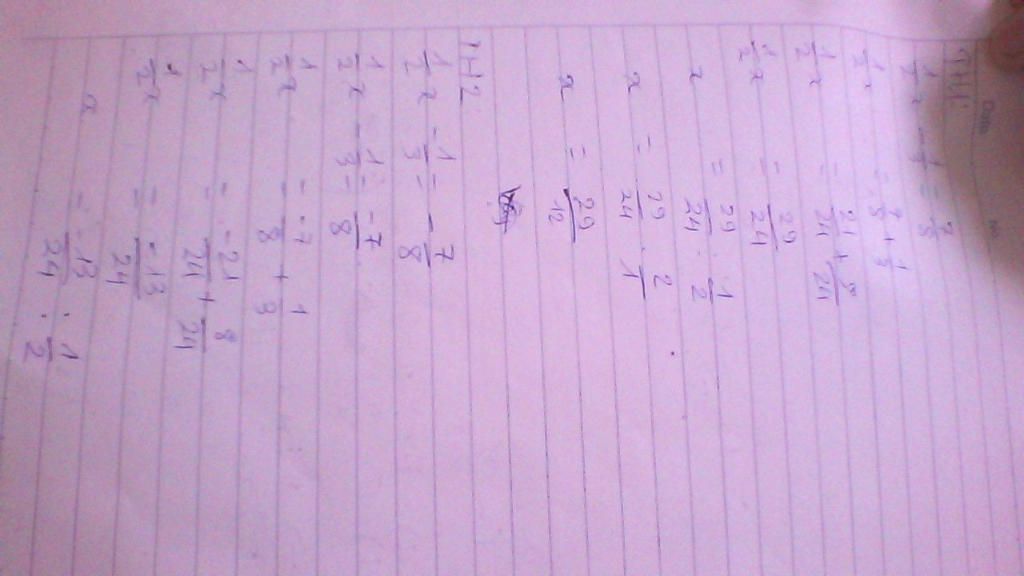 Date
No.
TH1:
1/2 x - 1/3 = 7/8
1/2 x = 7/8 + 1/3
1/2 x = 21/24 + 8/24
1/2 x = 29/24
x = 29/24 : 1/2
x = 29/24 . 2/1
x = 29/12
TH2
1/2 x - 1/3 = -7/8
1/2 x - 1/3 = -7/8
1/2 x = -7/8 + 1/3
1/2 x = -21/24 + 8/24
1/2 x = -13/24
x = -13/24 : 1/2